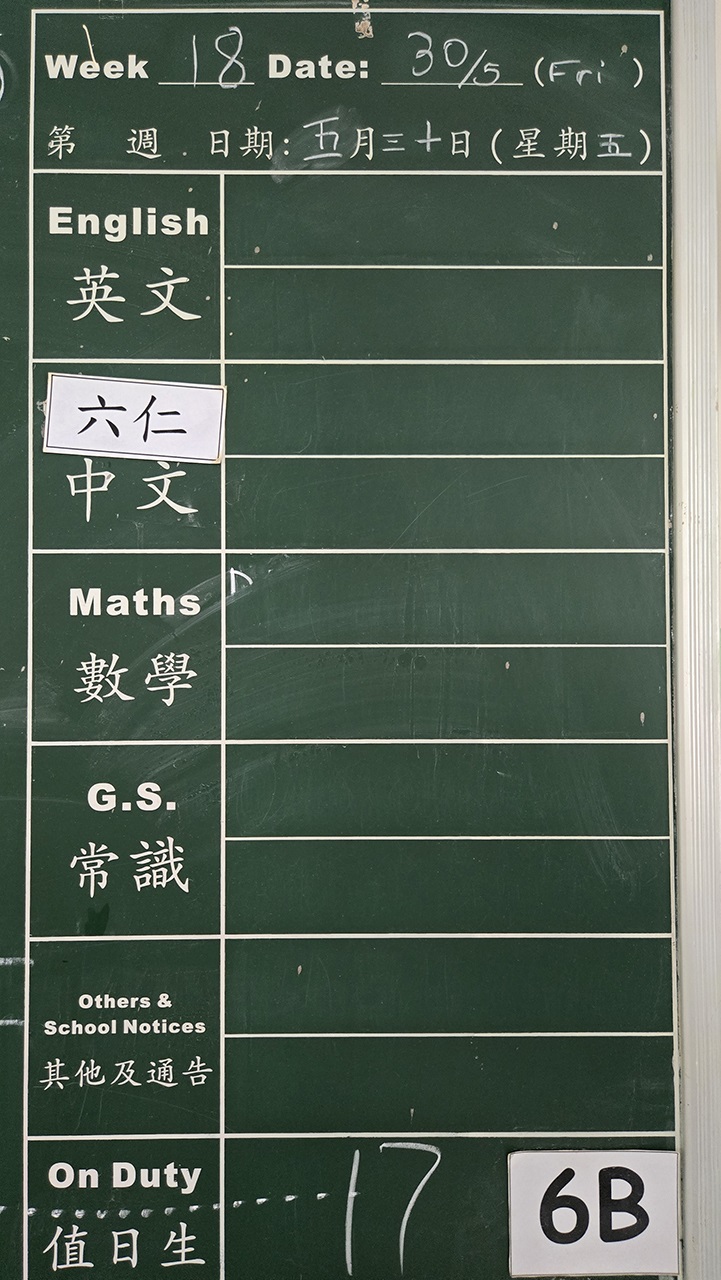 Week 18 Date: 30/5 (Fri)
第 週 日期: 五月三十日 (星期五)
English
英文
六仁
中文
Maths
數學
G.S.
常識
Others &
School Notices
其他及通告
On Duty 17
值日生
6B